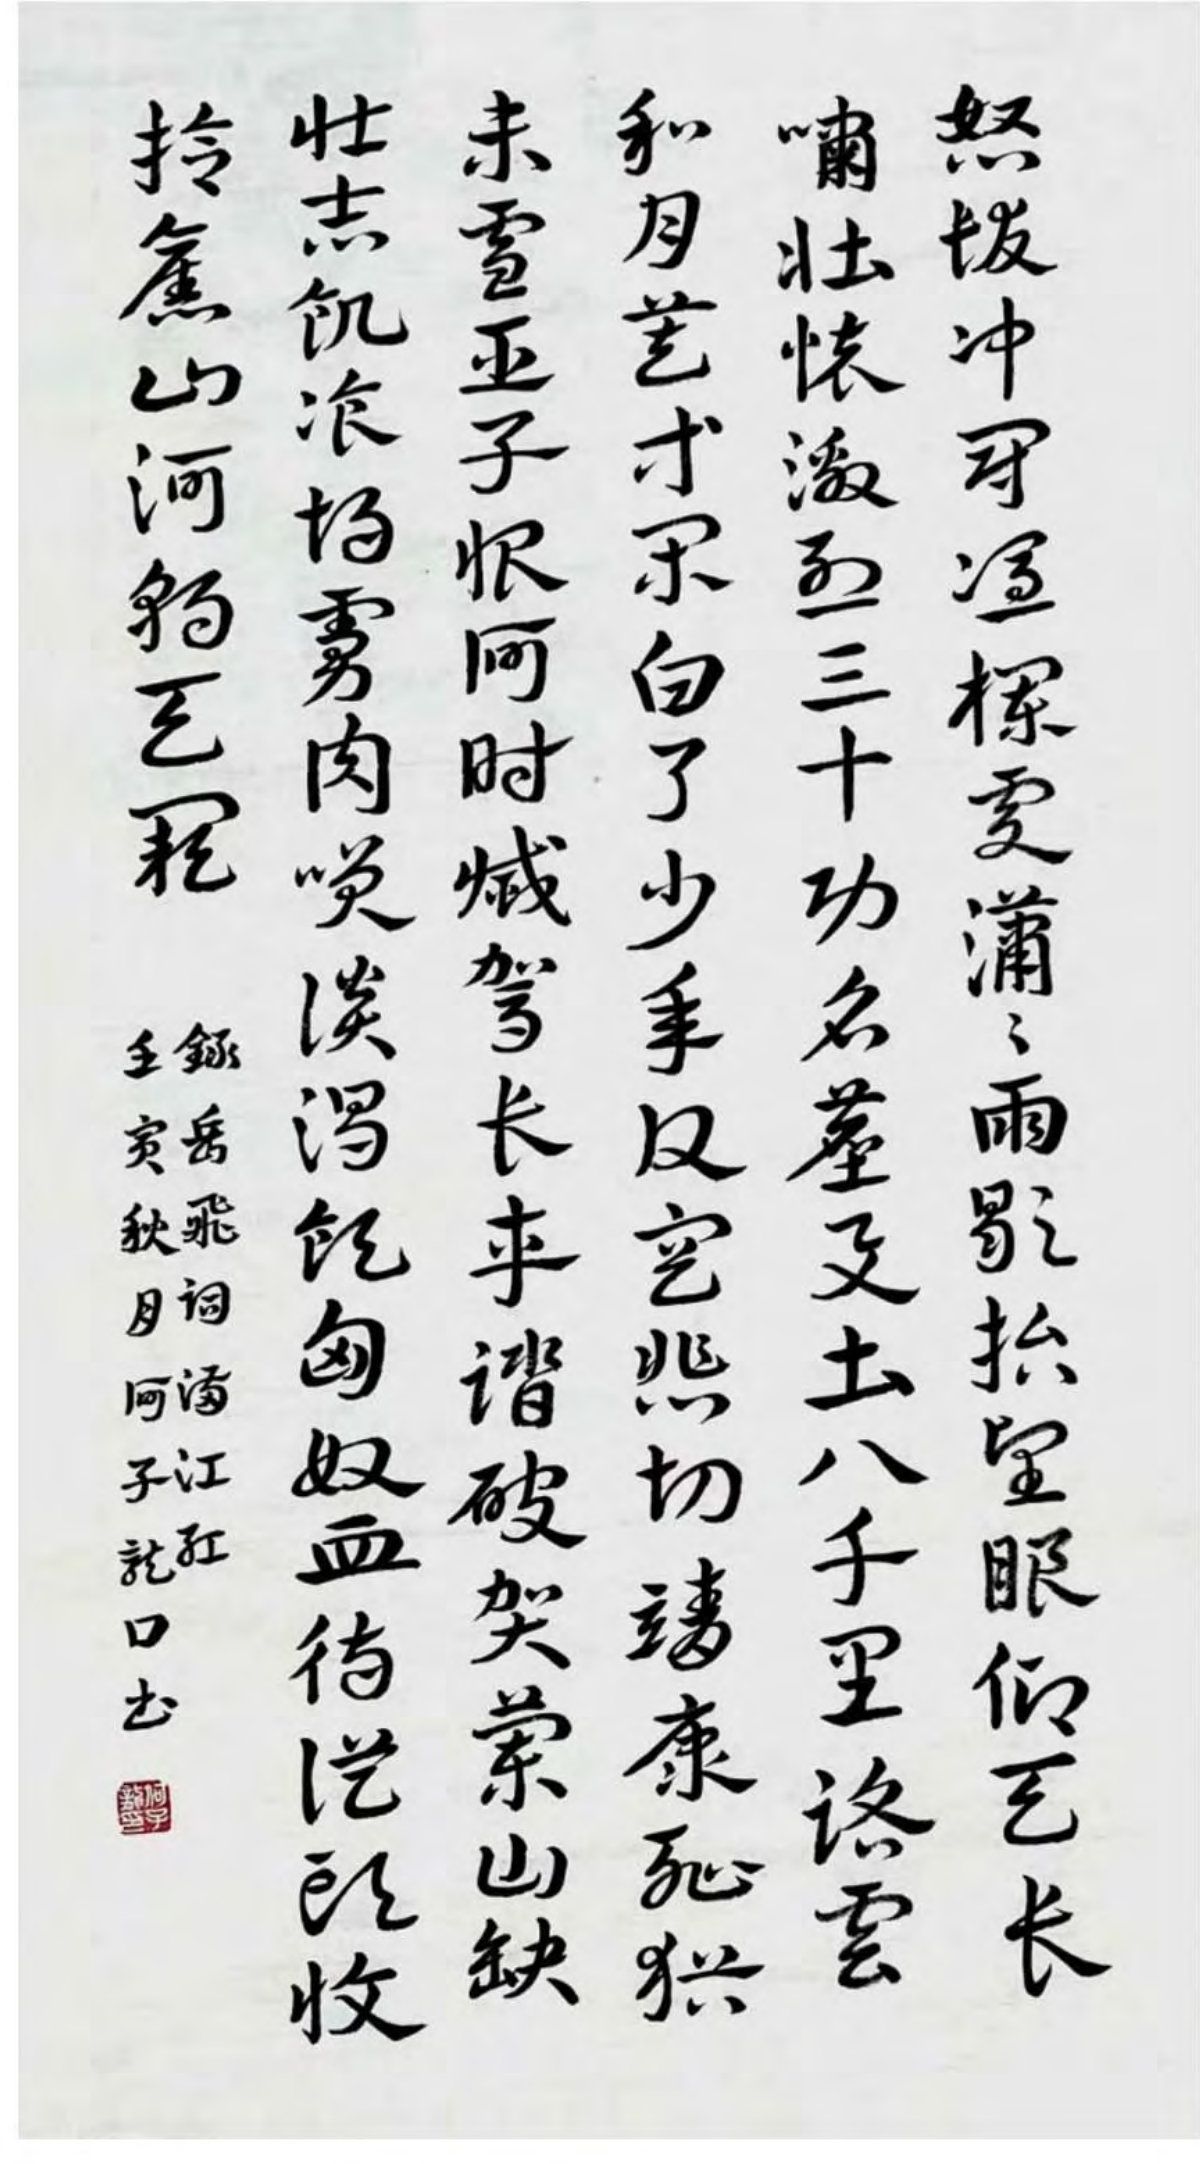 怒发冲冠凭栏处潇〻雨歇抬望眼仰天长
啸壮怀激烈三十功名尘与土八千里路云
和月莫等闲白了少年头空悲切靖康耻犹
未雪臣子恨何时灭驾长车踏破贺兰山缺
壮志饥餐胡虏肉笑谈渴饮匈奴血待从头收
拾旧山河朝天阙
录岳飞词满江红
壬寅秋月何子龙口书